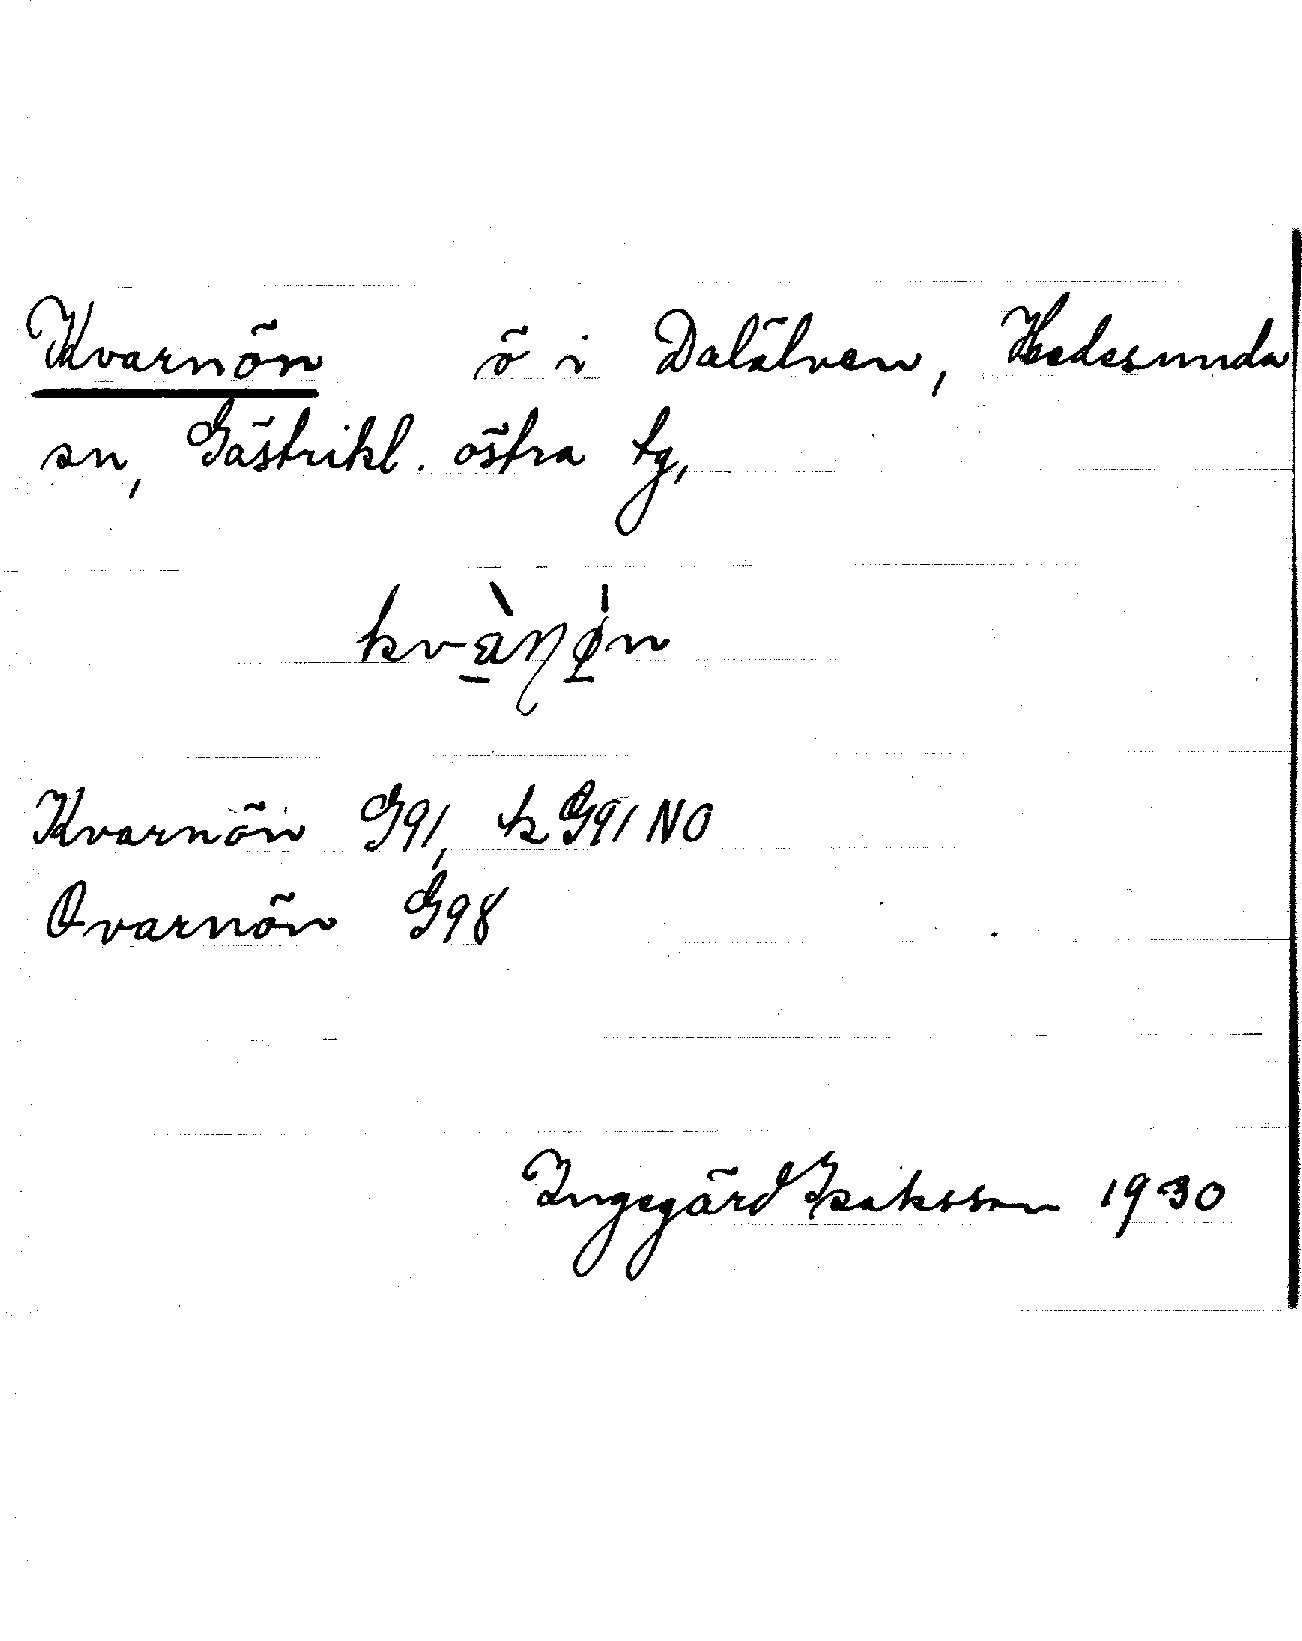 Kvarnön ö i Dalälven, Hedesunda
sn, Gästrikl. östra tg,
kvàɳø̍n
Kvarnön G91, k G91 NO
Qvarnön G98
Ingegärd Isaksson 1930